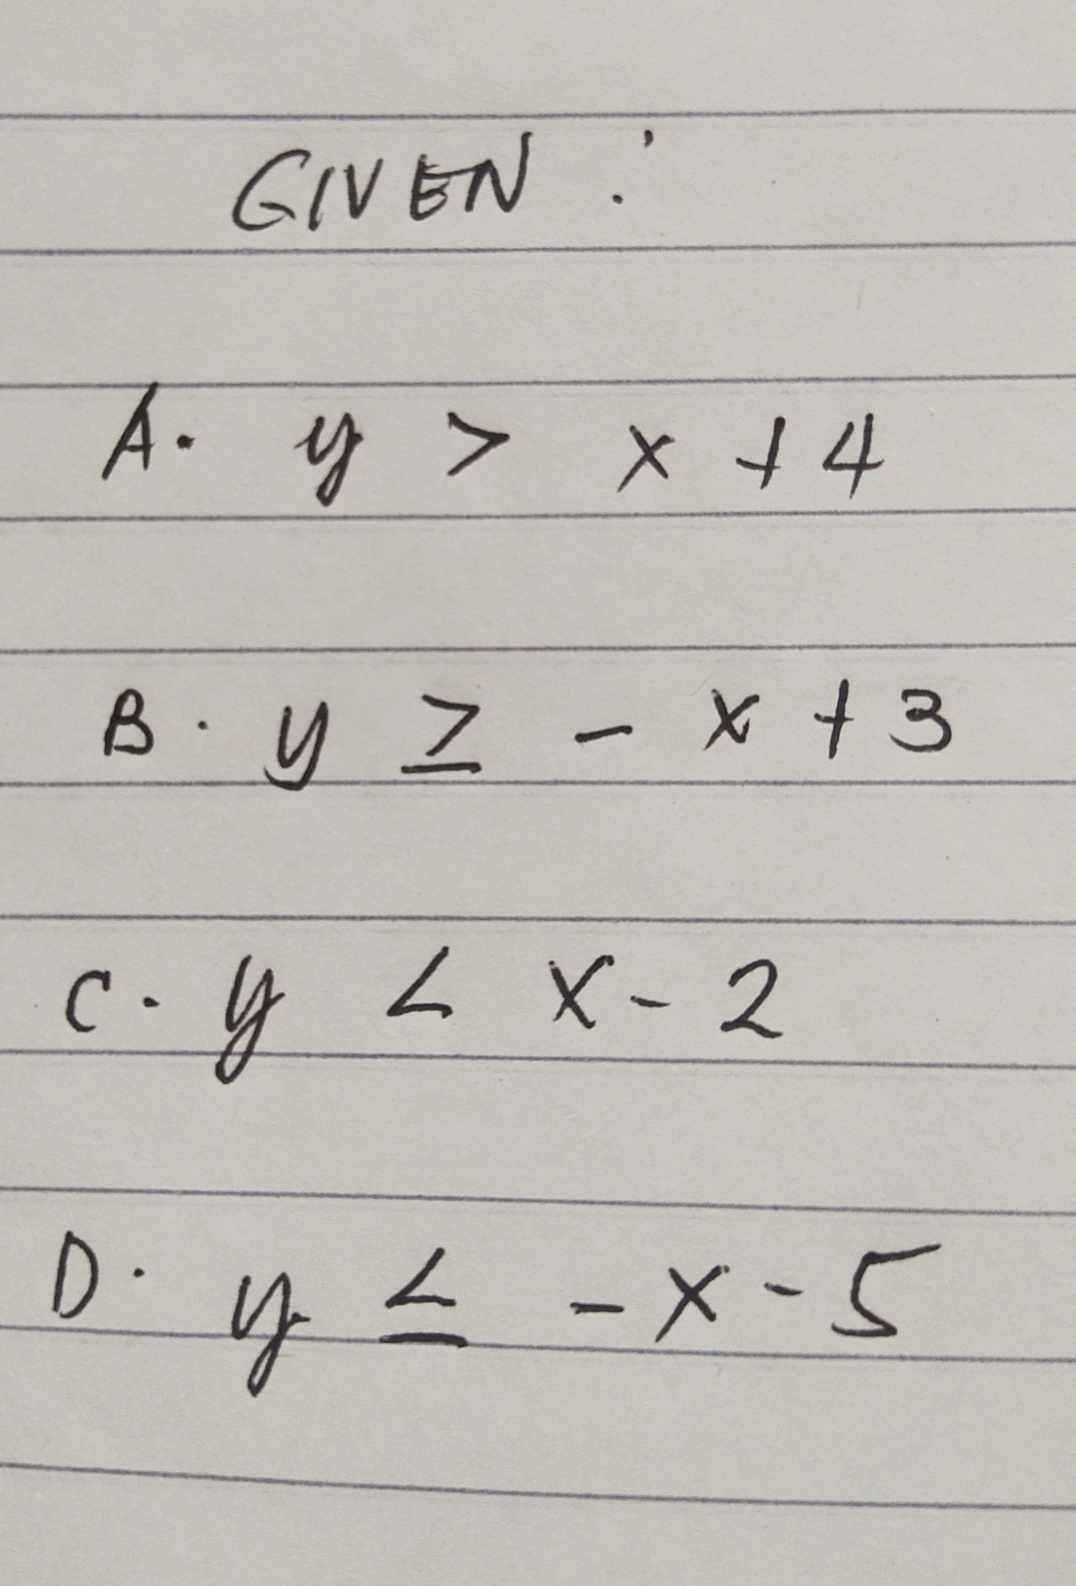 GIVEN :
A. y > x + 4
B. y ≥ - x + 3
C. y < x - 2
D. y ≤ - x - 5